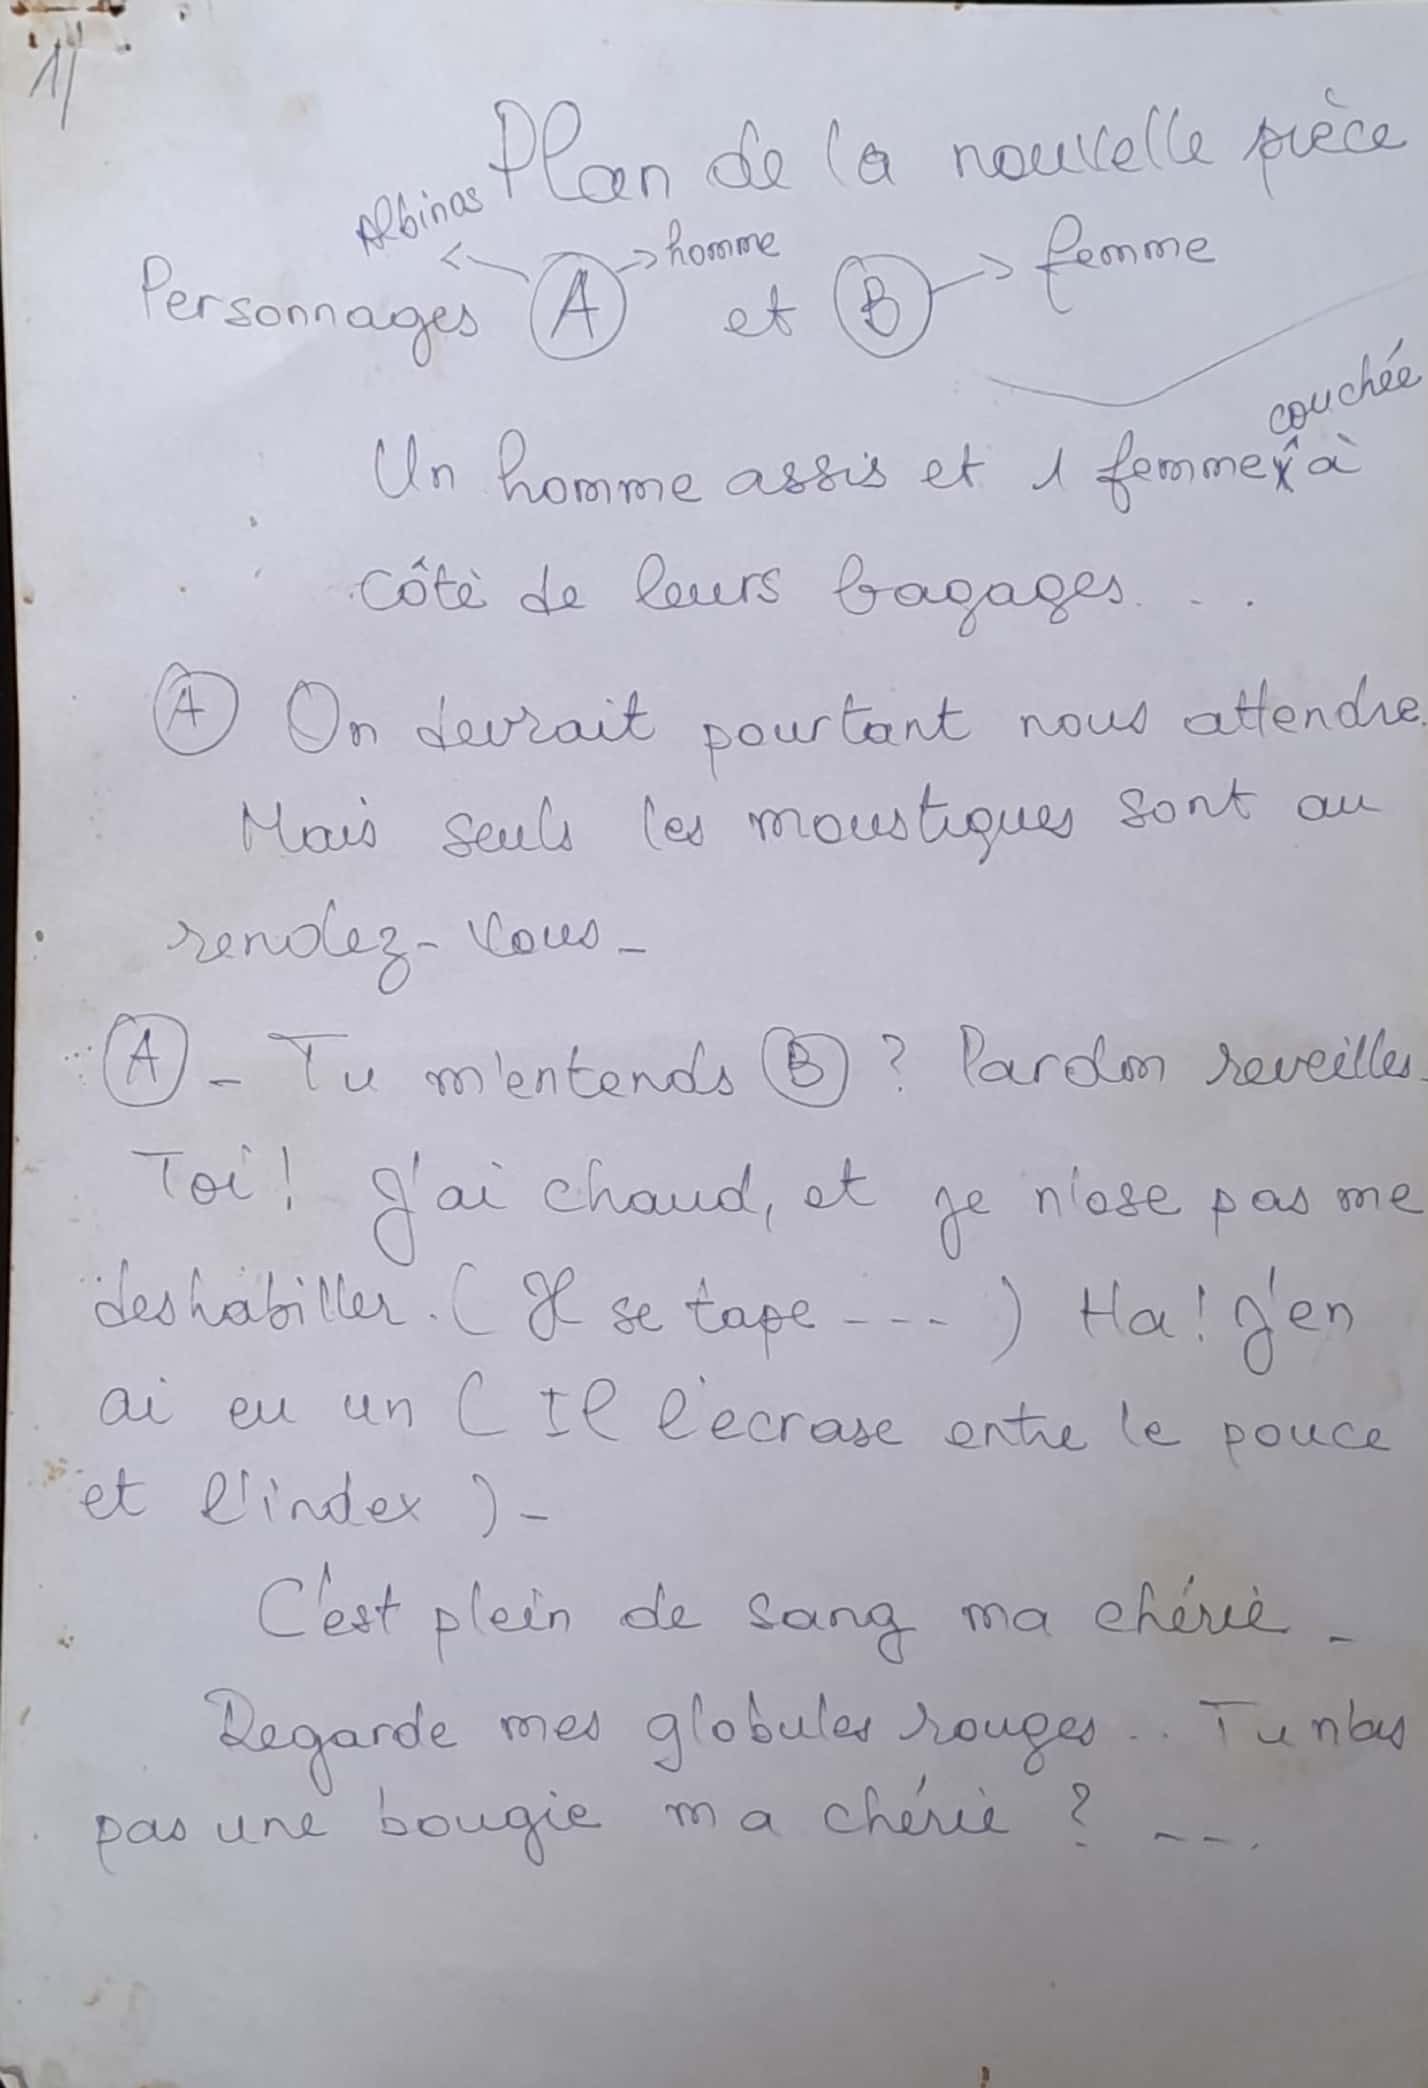 1/
Plan de la nouvelle pièce
Albinas
Personnages A → homme et B → femme
couchée
Un homme assis et 1 femme à
côté de leurs bagages...
A On devrait pourtant nous attendre.
Mais seuls les moustiques sont au
rendez-vous_
A - Tu m'entends B ? Pardon reveilles-
Toi! J'ai chaud, et je n'ose pas me
deshabiller. (Il se tape ---) Ha! J'en
ai eu un (Il l'ecrase entre le pouce
et l'index)-
C'est plein de sang ma chérie -
Regarde mes globules rouges... Tu n'as
pas une bougie ma chérie ? ---.